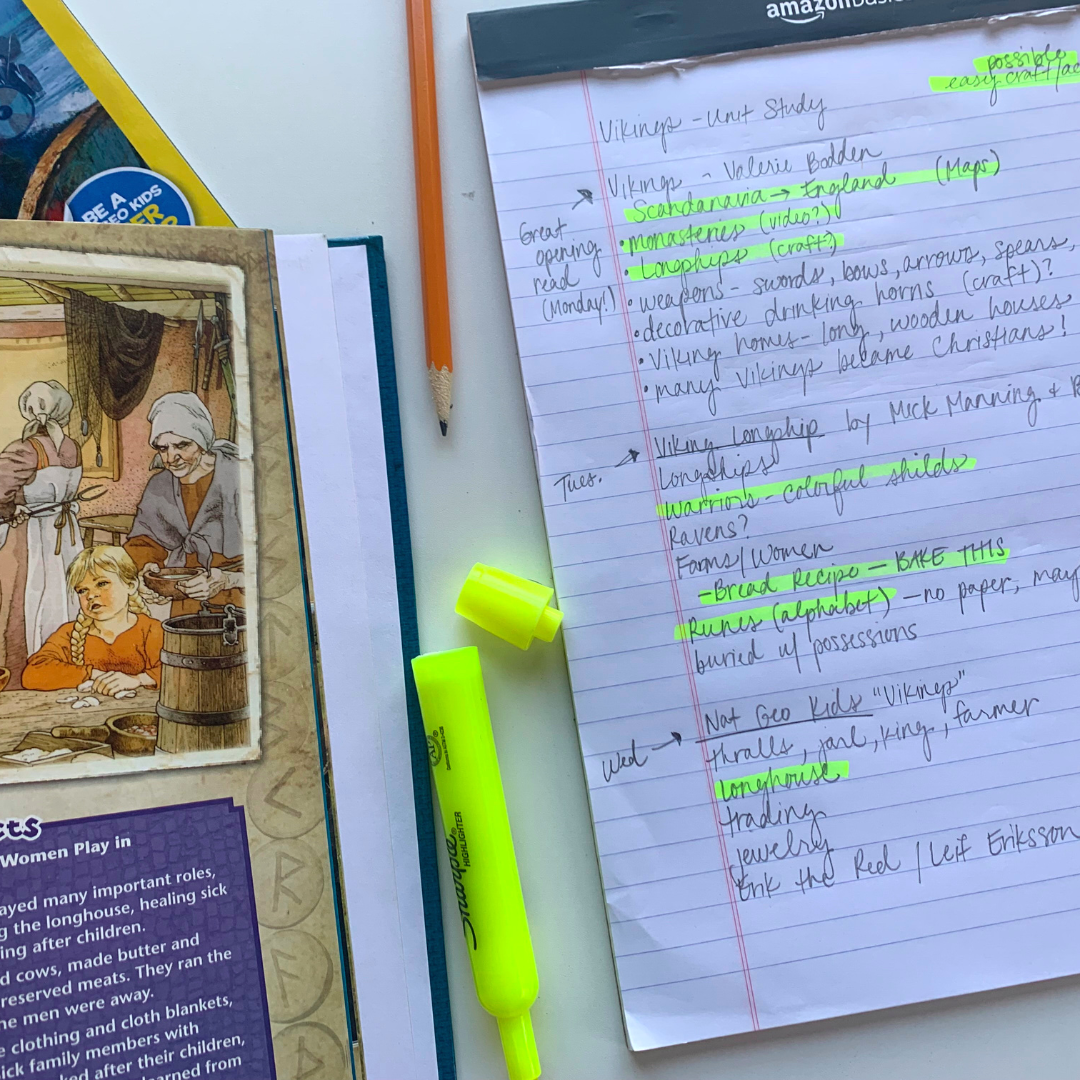 amazonbasics
possible
easy craft/ac
Vikings - Unit Study
Vikings - Valerie Bodden
Scandanavia → England (Maps)
• Monasteries (video?)
• Longships (craft?)
• weapons - swords, bows, arrows, spears,
• decorative drinking horns (craft)?
• Viking homes - long, wooden houses
• many Vikings became Christians!
Great
opening
read
(Monday!)
Tues.
Viking Longship by Mick Manning +
Longships
Warriors - colorful shilds
Ravens?
Farms/Women
- Bread Recipe - BAKE THIS
Runes (alphabet) - no paper, may
buried w/ possessions
Wed
Nat Geo Kids "Vikings"
thralls, jarl, king, farmer
longhouse
trading
jewelry
Erik the Red / Leif Eriksson
BE A
EO KIDS
ER
cts
Women Play in
ayed many important roles,
g the longhouse, healing sick
ing after children.
d cows, made butter and
reserved meats. They ran the
he men were away.
e clothing and cloth blankets,
ick family members with
ked after their children,
earned from
Sharpie®
HIGHLIGHTER